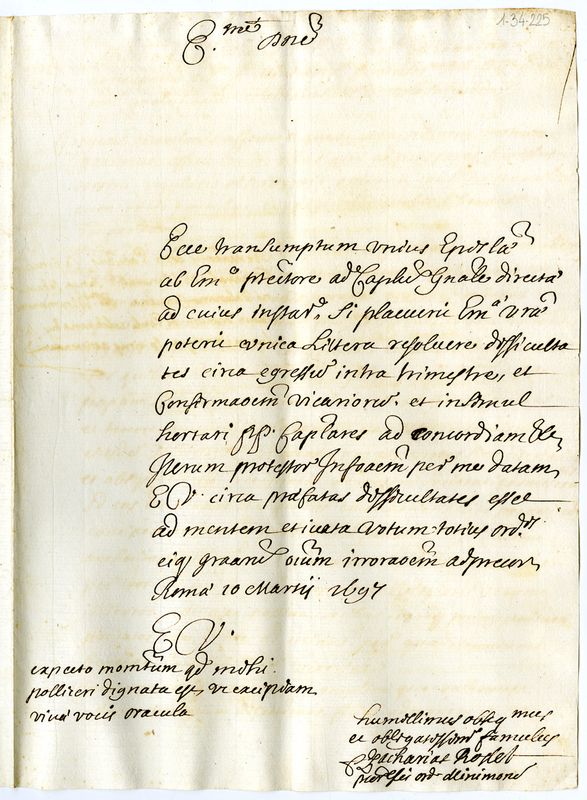 1-34-225
E.me Dne
Ecce transumptum unius Epistlã
ab Emo ptectore ad Caplũ Gnãle directã
ad cuius instar, si placuerit Emæ Vræ
poterit unica Littera resolvere difficulta
tes circa egressũ intra trimestre, et
Confirmaõem Vicariorũ. et insimul
hortari PP. Capitlares ad concordiam
Iterum protestor Infoaem per me datam
E V. circa præfatas difficultates esse
ad mentem et iuxta Votum totius ord.is
eiq; graarũ oium irroraõem adprecor
Roma 10 Martii 1697
E V.
expecto momtum qd mihi
polliceri dignata est, ut excipiam
viuæ vocis oracula
humillimus obseq mus
et obligatissim famulus
Zacharias Rodet
ord. Minimorũ